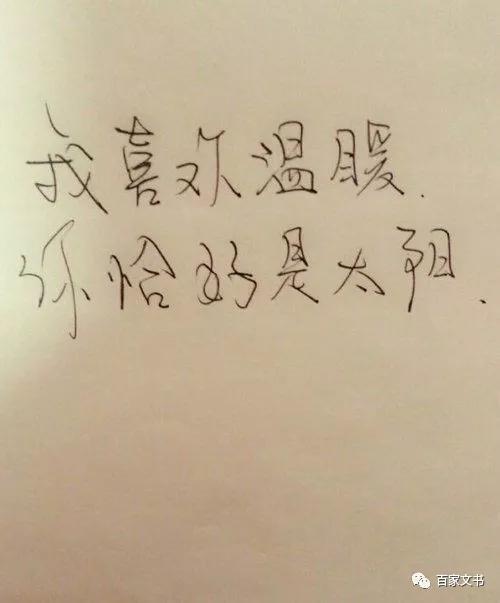 我喜欢温暖.
你恰好是太阳.
百家文书